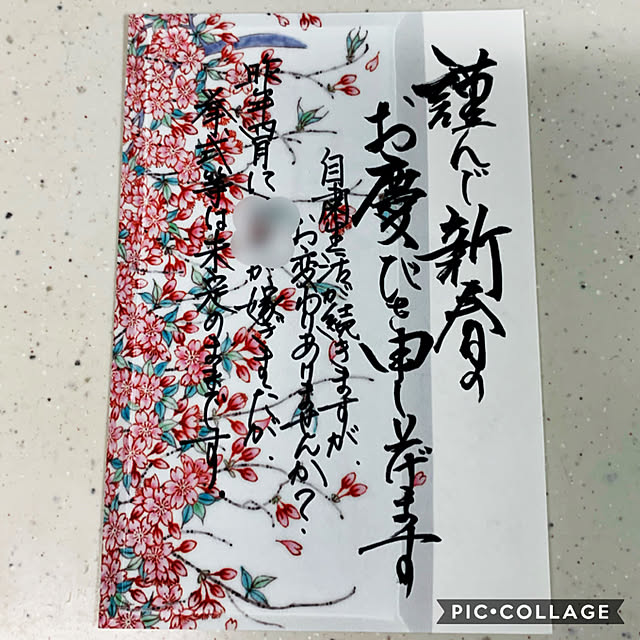 謹んで新春の
お慶びを申し上げます
自粛生活が続きますが、
お変わりありませんか?
昨年
が嫁ぎましたが、
挙式等は未定のままです。
PIC•COLLAGE